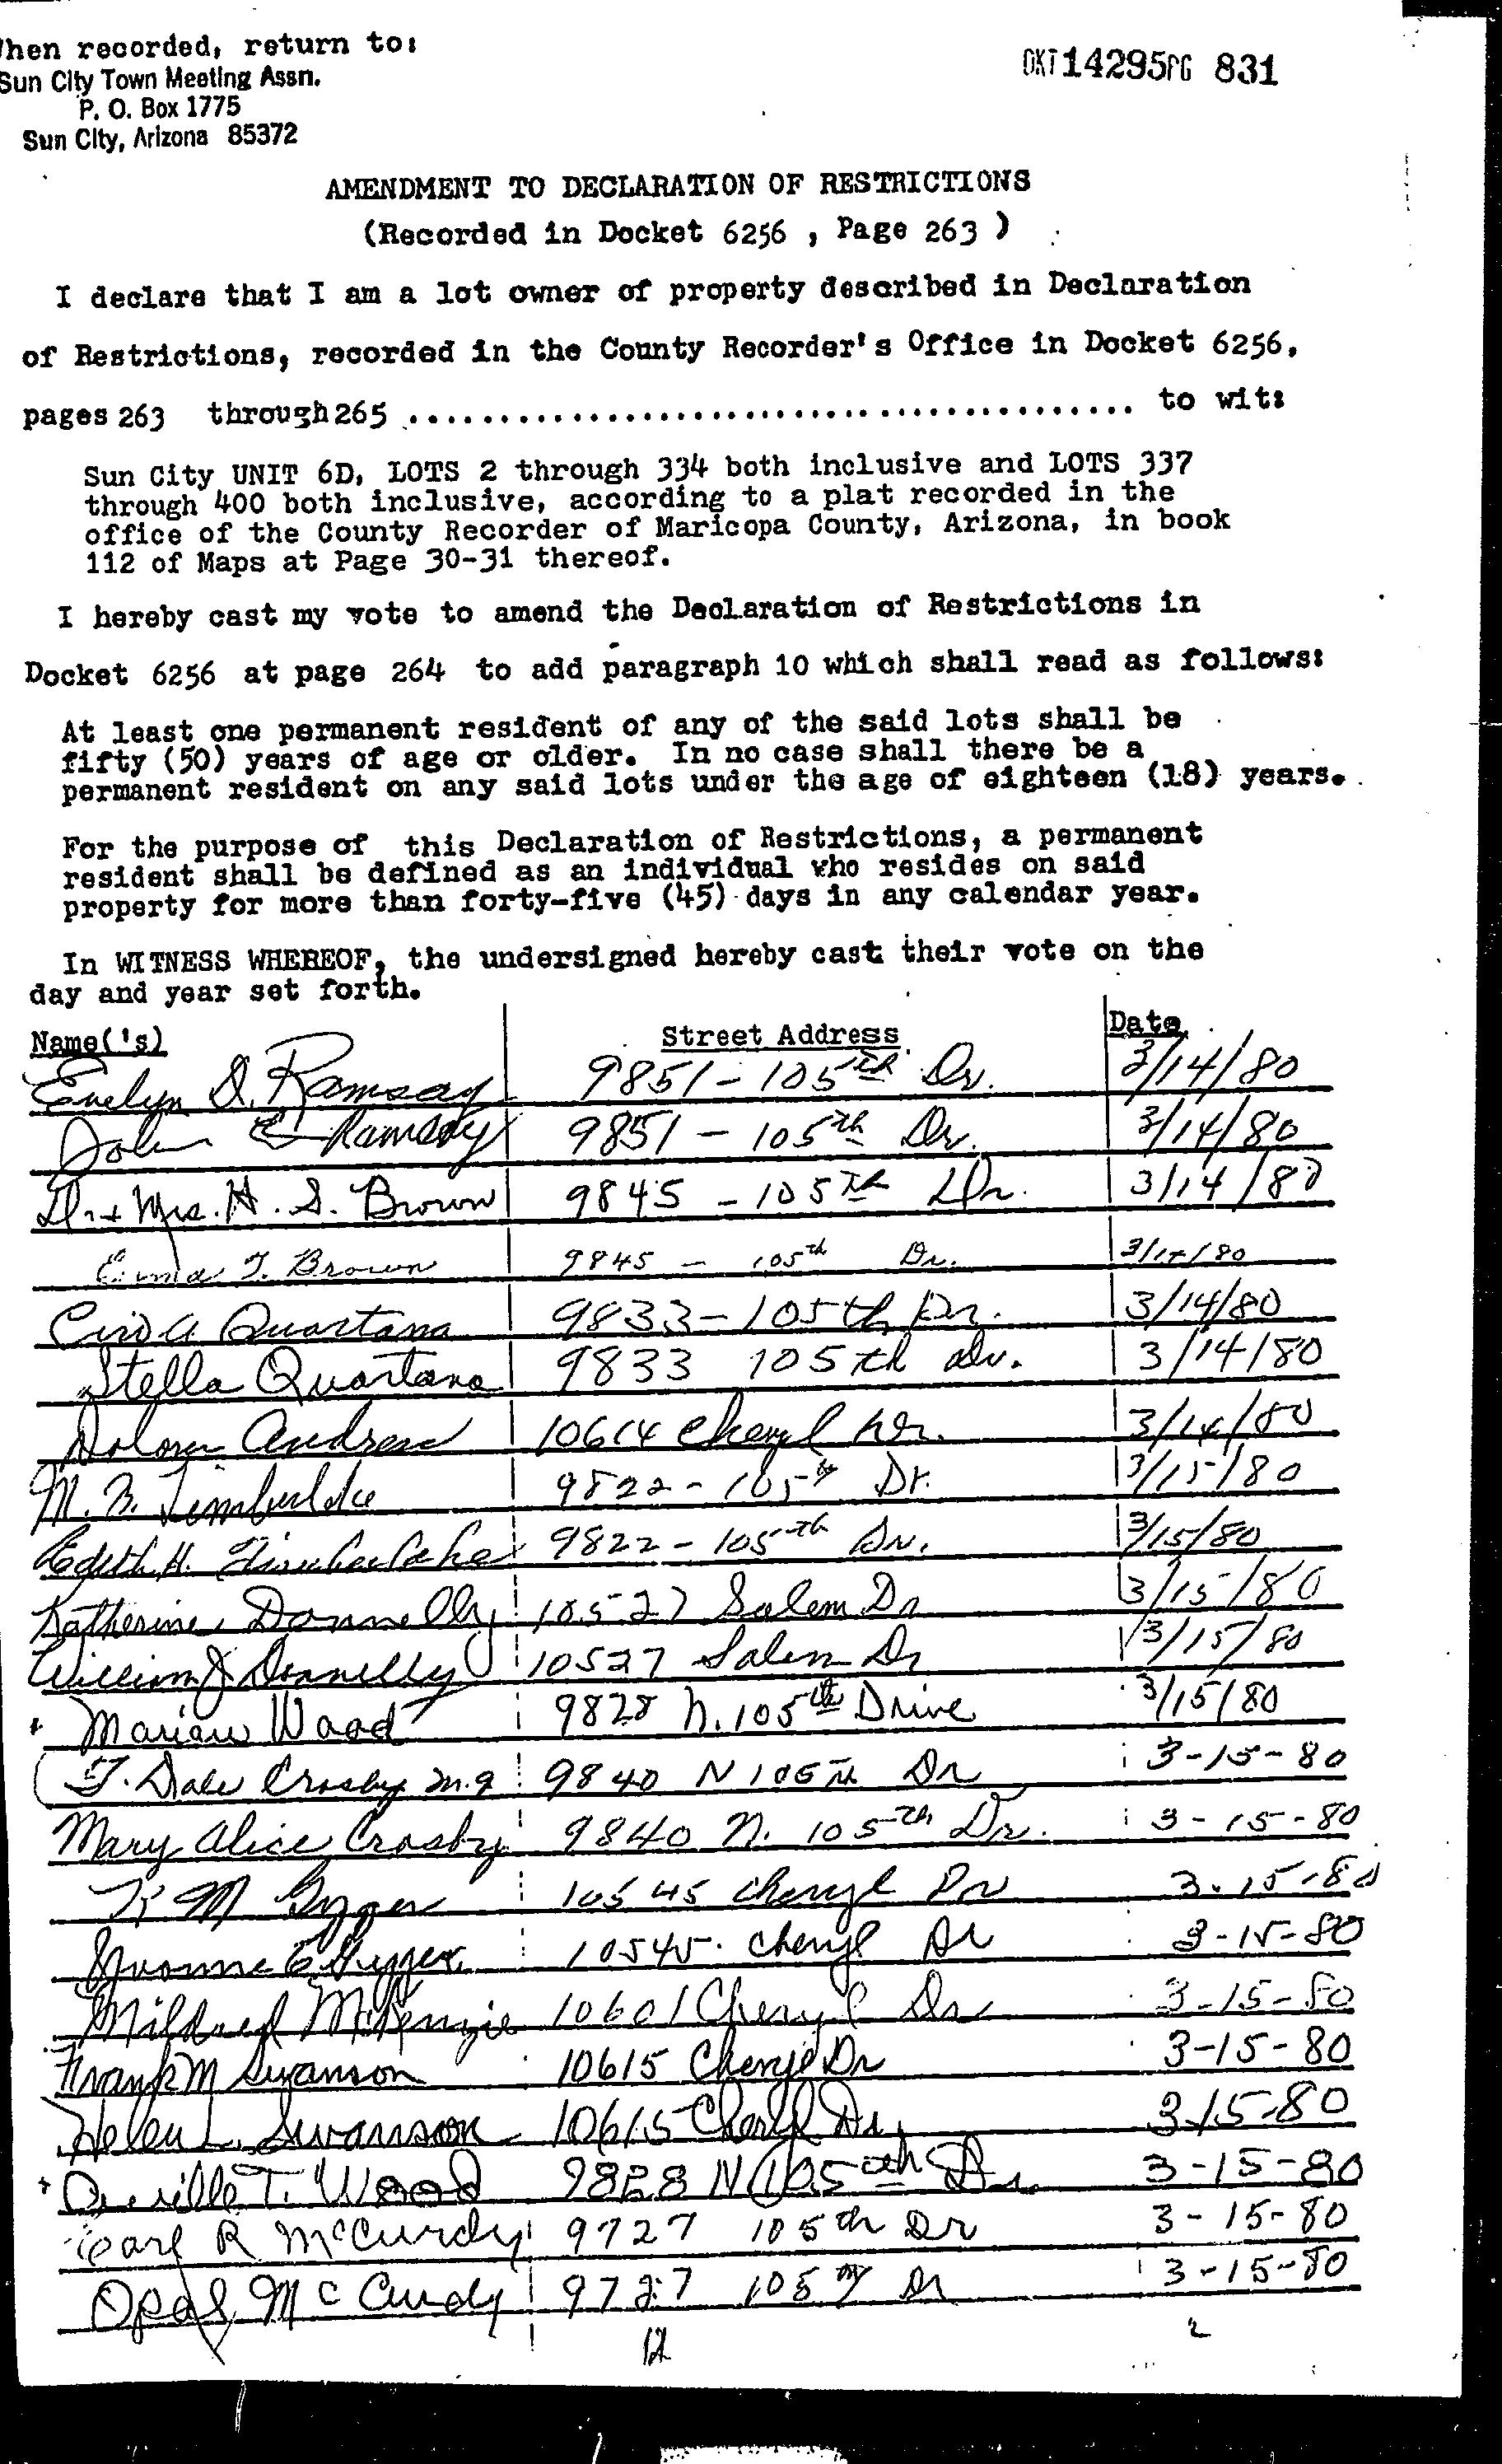 hen recorded, return to:
Sun City Town Meeting Assn.
P. O. Box 1775
Sun City, Arizona 85372
DKT 14295PG 831
AMENDMENT TO DECLARATION OF RESTRICTIONS
(Recorded in Docket 6256 , Page 263 )
I declare that I am a lot owner of property described in Declaration
of Restrictions, recorded in the County Recorder's Office in Docket 6256,
pages 263 through 265 ........................................ to wit:
Sun City UNIT 6D, LOTS 2 through 334 both inclusive and LOTS 337
through 400 both inclusive, according to a plat recorded in the
office of the County Recorder of Maricopa County, Arizona, in book
112 of Maps at Page 30-31 thereof.
I hereby cast my vote to amend the Declaration of Restrictions in
Docket 6256 at page 264 to add paragraph 10 which shall read as follows:
At least one permanent resident of any of the said lots shall be
fifty (50) years of age or older. In no case shall there be a
permanent resident on any said lots under the age of eighteen (18) years.
For the purpose of this Declaration of Restrictions, a permanent
resident shall be defined as an individual who resides on said
property for more than forty-five (45) days in any calendar year.
In WITNESS WHEREOF, the undersigned hereby cast their vote on the
day and year set forth.
Name('s) Street Address Date
Evelyn D. Ramsay 9851 - 105th Dr. 3/14/80
John E Ramsay 9851 - 105th Dr. 3/14/80
Dr + Mrs. H. S. Brown 9845 - 105th Dr. 3/14/80
Brown 9845 - 105th Dr. 3/14/80
Ciro A Quartana 9833 - 105th Dr. 3/14/80
Stella Quartana 9833 105th Dr. 3/14/80
Andrew 10614 Cheryl Dr. 3/14/80
M. B. Timberlake 9822 - 105th Dr. 3/15/80
Edith H. Timberlake 9822 - 105th Dr. 3/15/80
Katherine Donnelly 10527 Salem Dr 3/15/80
William J Donnelly 10527 Salem Dr 3/15/80
Marian Wood 9828 N. 105th Drive 3/15/80
J. Dale Crosby 9840 N 105th Dr 3-15-80
Mary Alice Crosby 9840 N. 105th Dr. 3-15-80
K M Gyger 10545 Cheryl Dr 3-15-80
Yvonne E Gyger 10545 Cheryl Dr 3-15-80
Mildred McKenzie 10601 Cheryl Dr 3-15-80
Frank M Swanson 10615 Cheryl Dr 3-15-80
Helen L. Swanson 10615 Cheryl Dr. 3-15-80
Orville T. Wood 9828 N 105th Dr. 3-15-80
Earl R McCurdy 9727 105th Dr 3-15-80
Opal McCurdy 9727 105th Dr 3-15-80
12 2